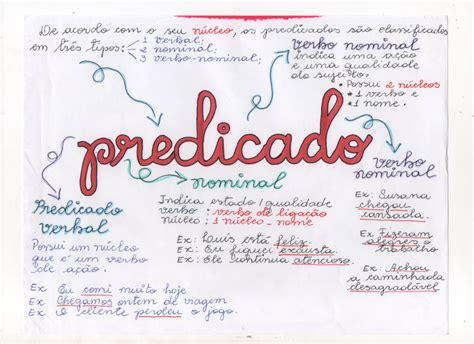 De acordo com o seu núcleo, os predicados são classificados
em três tipos:
1 verbal;
2 nominal;
3 verbo-nominal;
verbo nominal
Indica uma ação
e uma qualidade
do sujeito.
• Possui 2 núcleos
• 1 verbo e
• 1 nome.
predicado
Predicado
verbal
Possui um núcleo
que é um verbo
de ação.
Ex: Eu comi muito hoje
Ex: Chegamos ontem de viagem
Ex: O cliente perdeu o jogo.
nominal
Indica estado/qualidade
verbo: verbo de ligação
núcleo: 1 núcleo - nome
Ex: Luis está feliz.
Ex: Eu fiquei exausta.
Ex: Ele continua atencioso.
verbo
nominal
Ex: Susana
chegou
cansada.
Ex: Fizeram
alegres o
trabalho
Ex: Achou
a caminhada
desagradável